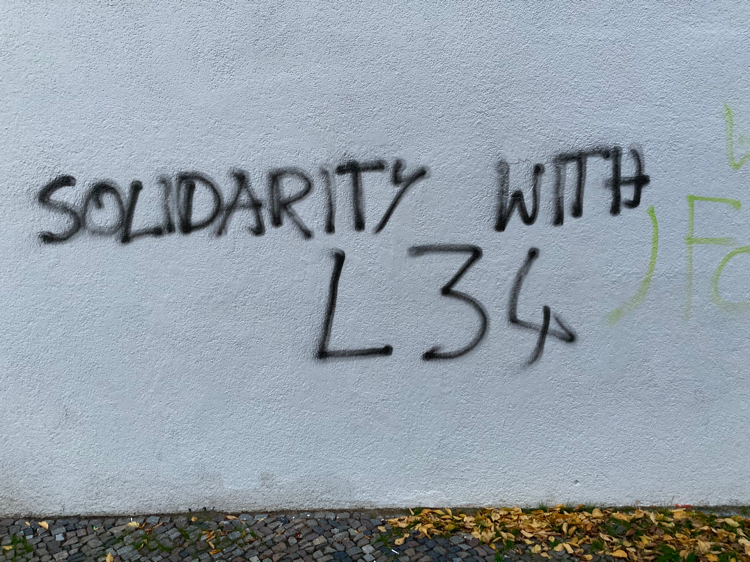 SOLIDARITY WITH
L34